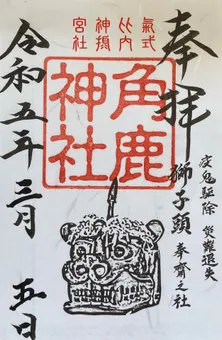 奉拝
氣比神宮
式内摂社
角鹿神社
獅子頭
奉齋之社
疫鬼駆除 災難退失
令和五年三月五日